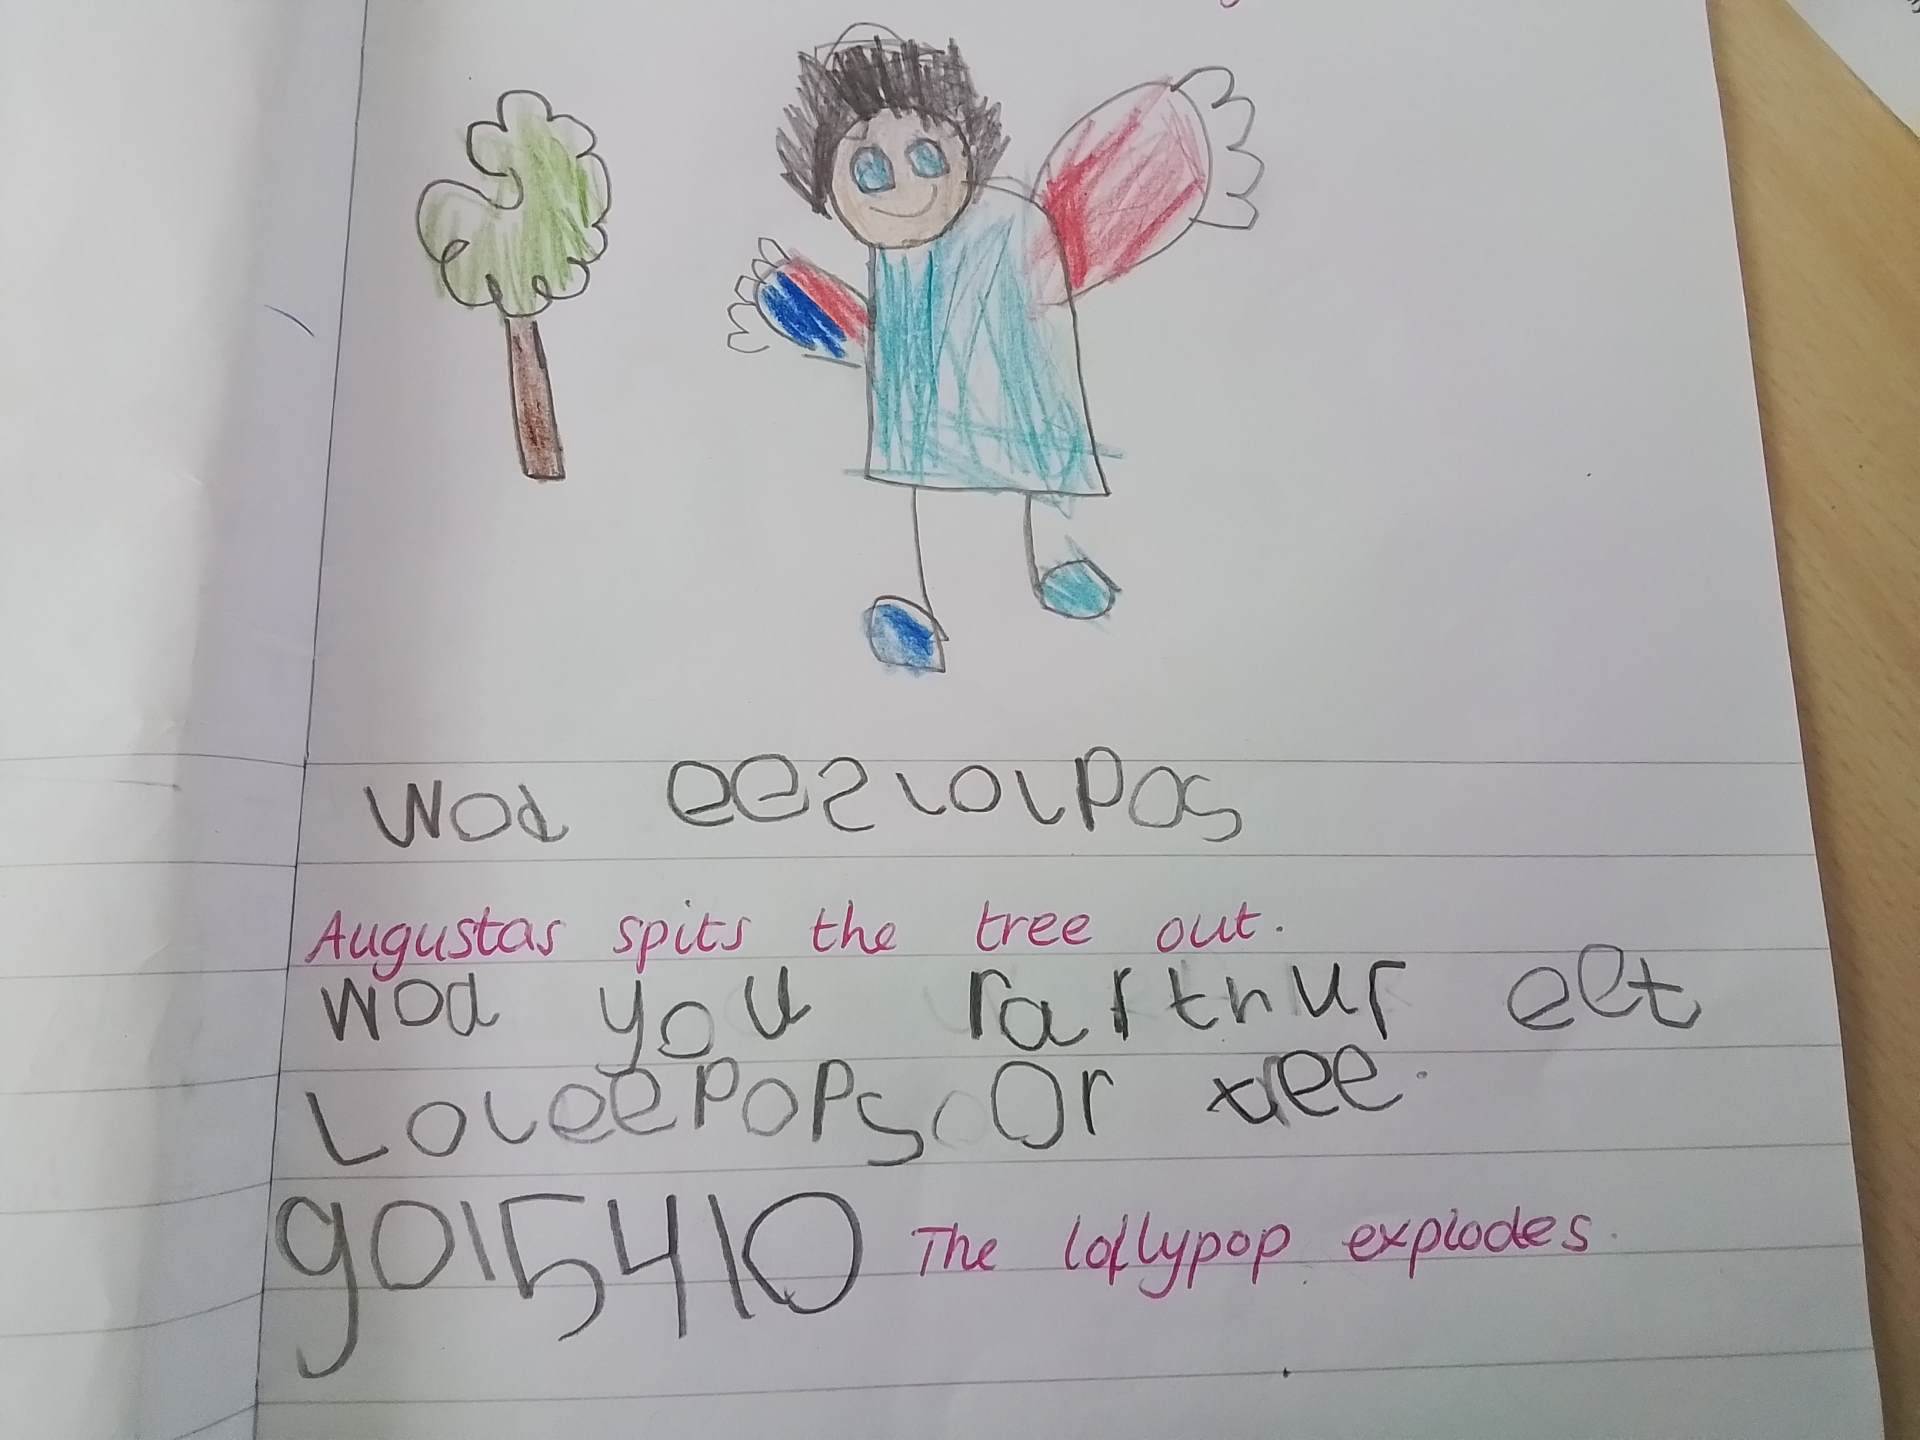 wod ees lolpos
Augustas spits the tree out.
wod you rarthur eet
Loleepops or tree.
go15410 The lollypop explodes.